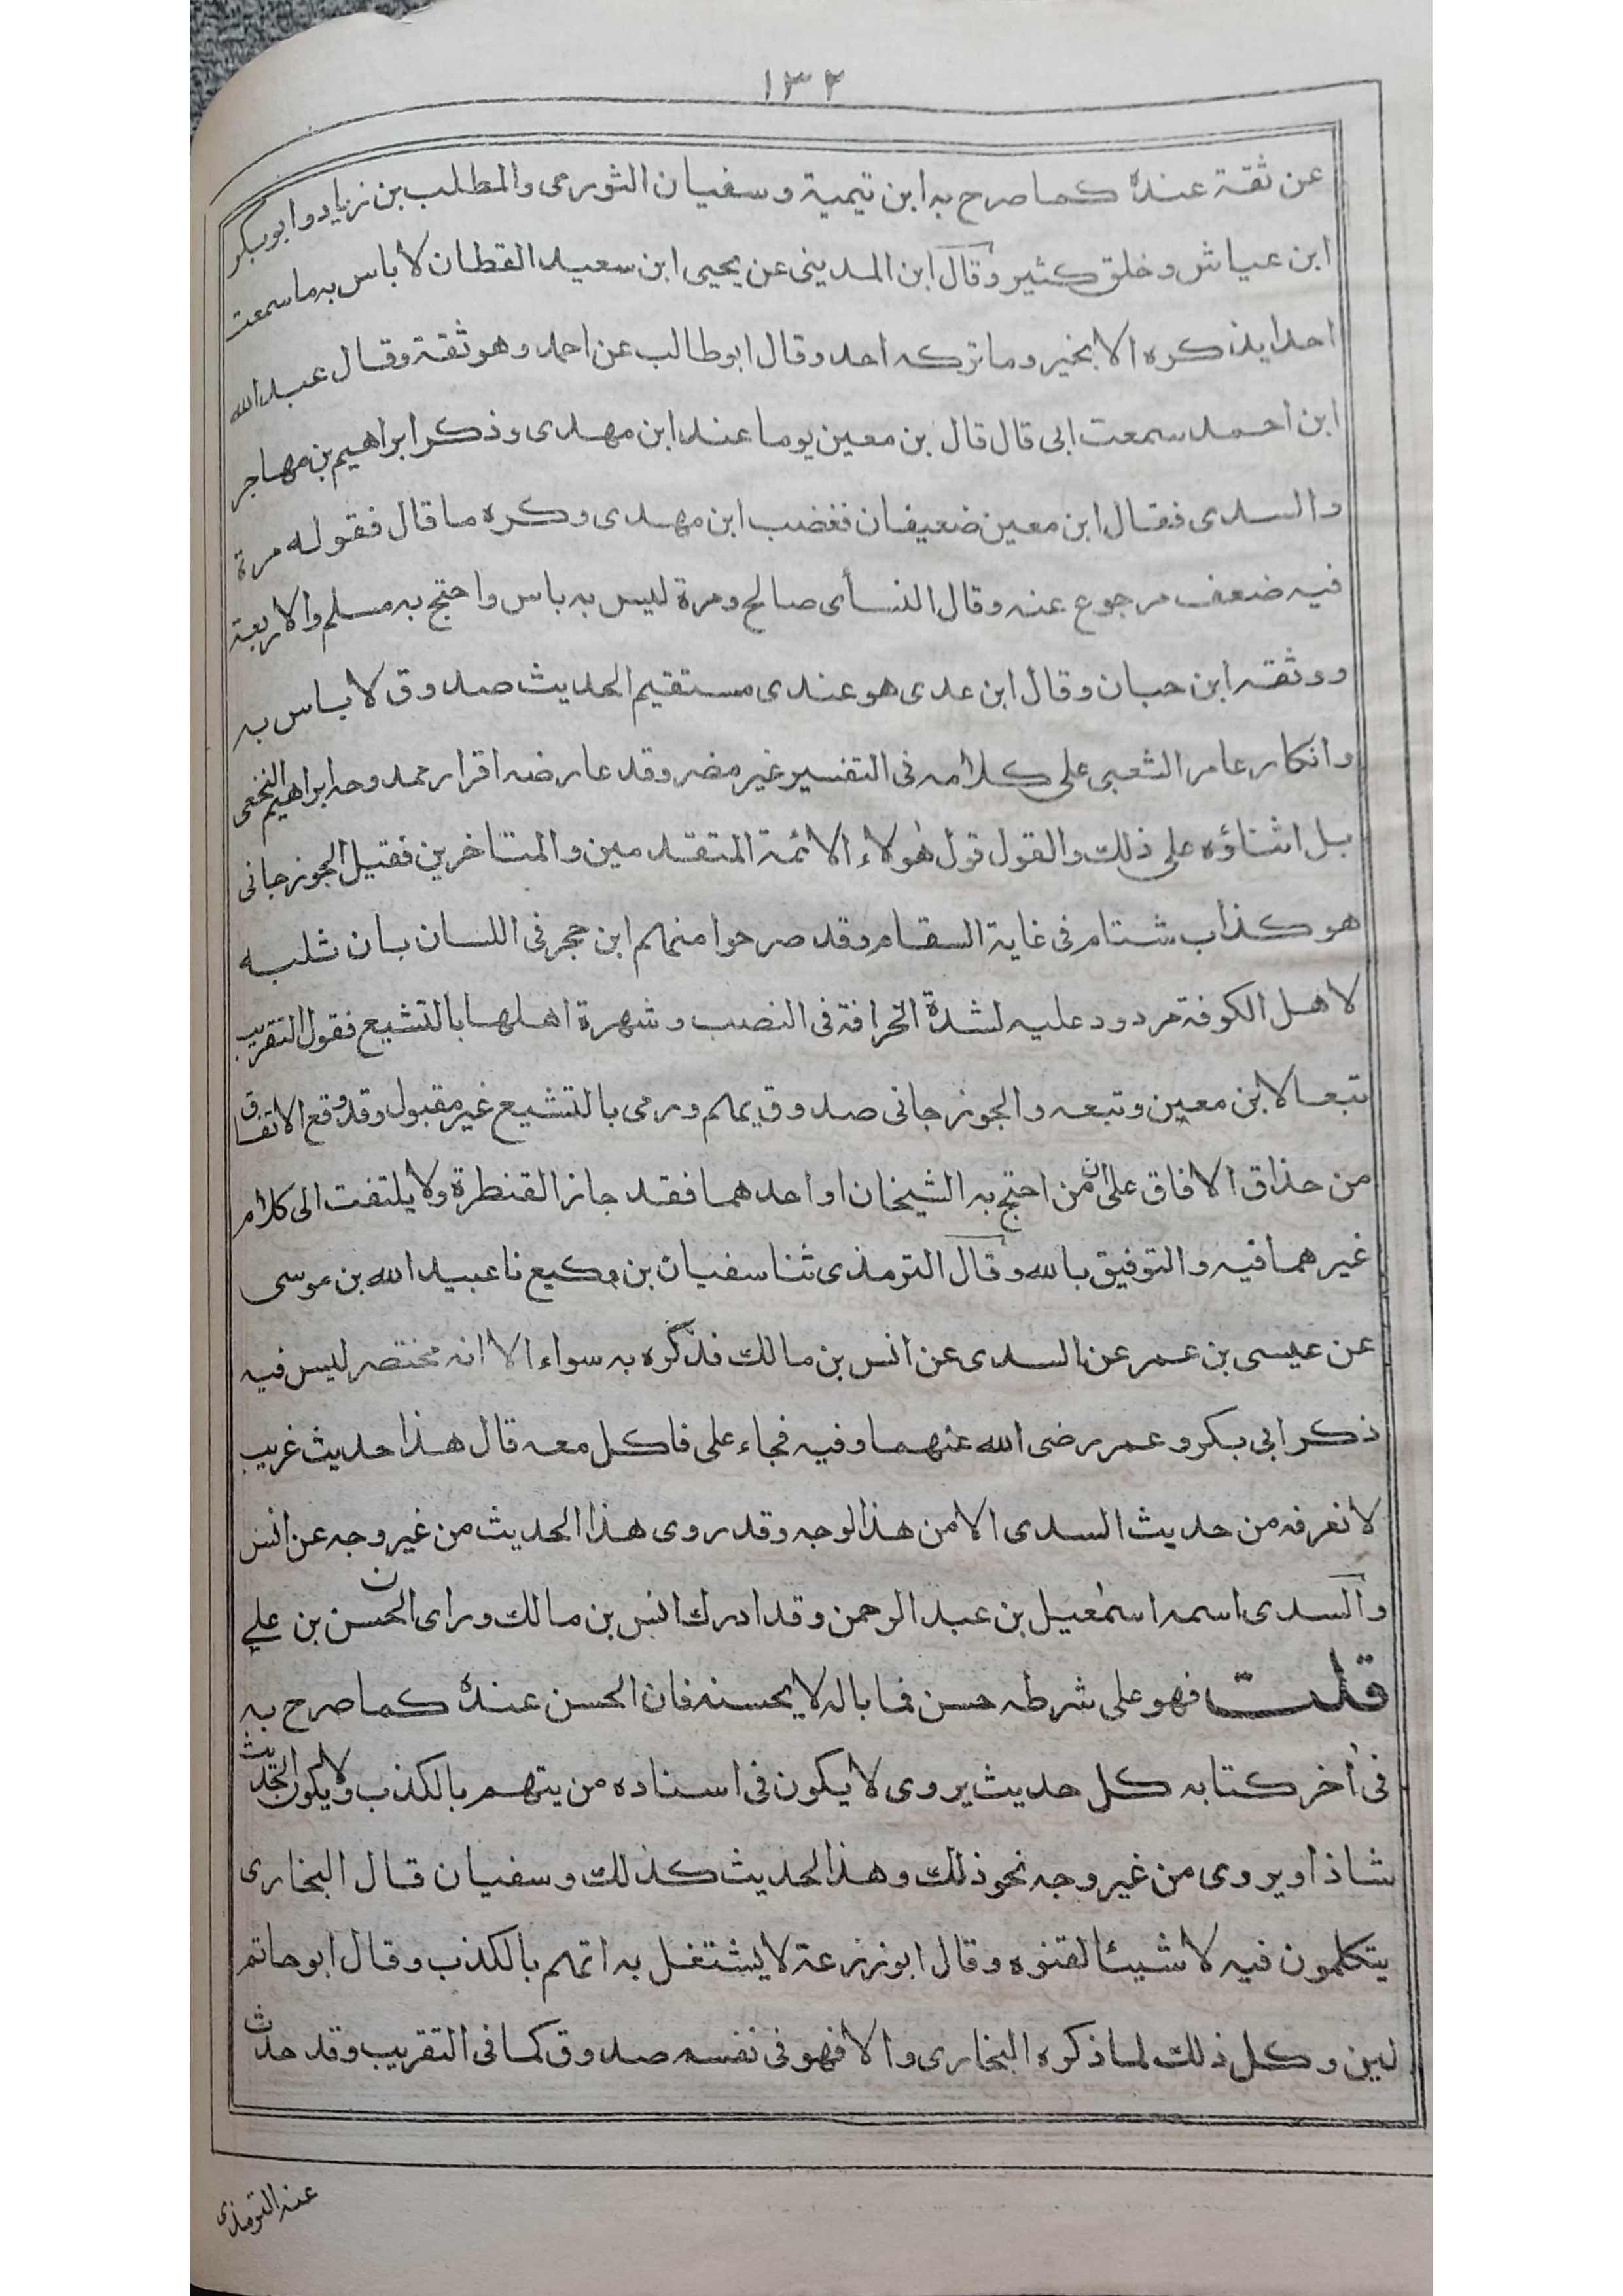 ١٣٢
عن ثقة عنده كما صرح به ابن تيمية وسفيان الثوري والمطلب بن زياد وابو بكر
ابن عياش وخلق كثير وقال ابن المديني عن يحيى ابن سعيد القطان لا باس به ما سمعت
احدا يذكره الا بخير وما تركه احد وقال ابو طالب عن احمد وهو ثقة وقال عبد الله
ابن احمد سمعت ابي قال قال بن معين يوما عند ابن مهدى وذكر ابراهيم بن مهاجر
والسدى فقال ابن معين ضعيفان فغضب ابن مهدى وكره ما قال فقوله مرة
فيه ضعف مرجوع عنه وقال النسأى صالح ومرة ليس به باس واحتج به مسلم والاربعة
ووثقه ابن حبان وقال ابن عدى هو عندى مستقيم الحديث صدوق لا باس به
وانكار عامر الشعبى على كلامه فى التفسير غير مضر وقد عارضه اقرار ممدوحه ابراهيم النخعى
بل اثناؤه على ذلك والقول قول هؤلاء الائمة المتقدمين والمتاخرين فقتيل الجوزجانى
هو كذاب شتام فى غاية السقام وقد صرحوا منهم ابن حجر فى اللسان بان ثلبه
لاهل الكوفة مردود عليه لشدة انحرافه فى النصب وشهرة اهلها بالتشيع فقول التقريب
تبعا لابن معين وتبعه والجوزجانى صدوق يهم ورمى بالتشيع غير مقبول وقد وقع الاتفاق
من حذاق الافاق على ان من احتج به الشيخان او احدهما فقد جاز القنطرة ولا يلتفت الى كلام
غيرهما فيه والتوفيق بالله وقال الترمذى ثنا سفيان بن وكيع نا عبيد الله بن موسى
عن عيسى بن عمر عن السدى عن انس بن مالك فذكره به سواء الا انه مختصر ليس فيه
ذكر ابى بكر وعمر رضى الله عنهما وفيه فجاء على فاكل معه قال هذا حديث غريب
لا نعرفه من حديث السدى الا من هذا الوجه وقد روى هذا الحديث من غير وجه عن انس
والسدى اسمه اسمٰعيل بن عبد الرحمن وقد ادرك انس بن مالك وراى الحسن بن علي
قلت فهو على شرطه حسن فما باله لا يحسنه فان الحسن عنده كما صرح به
فى أخر كتابه كل حديث يروى لا يكون فى اسناده من يتهم بالكذب ولا يكون الحديث
شاذا ويروى من غير وجه نحو ذلك وهذا الحديث كذلك وسفيان قال البخارى
يتكلمون فيه لاشيئا لقنوه وقال ابو زرعة لا يشتغل به اتهم بالكذب وقال ابو حاتم
لين وكل ذلك لما ذكره البخارى والا فهو فى نفسه صدوق كما فى التقريب وقد حدث
عنه الترمذى